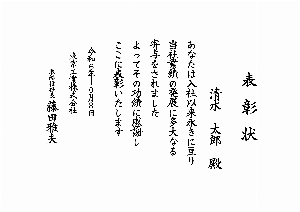 表彰状
清水 太郎 殿
あなたは入社以来永きに亘り
当社業績の発展に多大なる
寄与をされました
よってその功績に感謝し
ここに表彰いたします
令和6年10月8日
東京工業株式会社
代表取締役 藤田雅夫